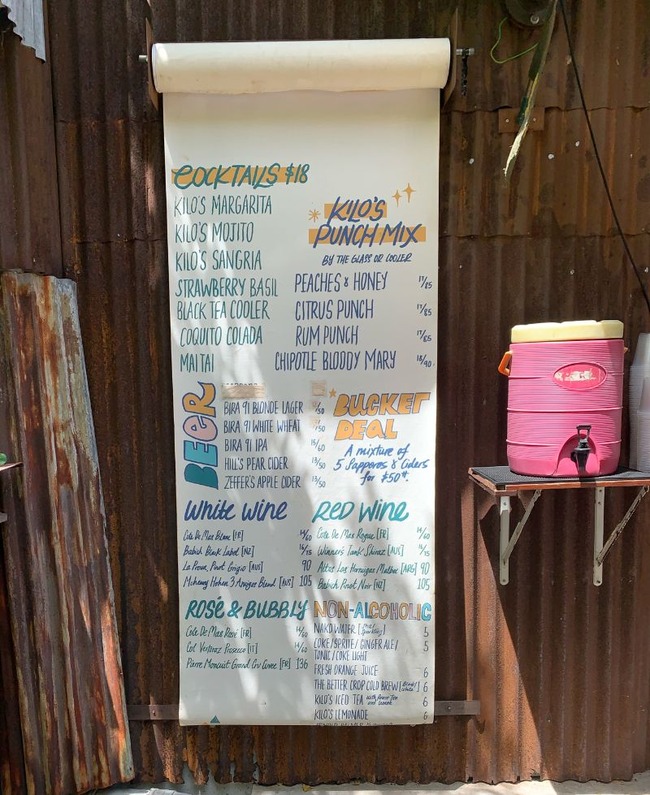 COCKTAILS $18
KILO'S MARGARITA
KILO'S MOJITO
KILO'S SANGRIA
STRAWBERRY BASIL
BLACK TEA COOLER
COQUITO COLADA
MAI TAI
KILO'S
PUNCH MIX
BY THE GLASS OR COOLER
PEACHES & HONEY 17/85
CITRUS PUNCH 17/85
RUM PUNCH 17/85
CHIPOTLE BLOODY MARY 18/90
BEER
BIRA 91 BLONDE LAGER /50
BIRA 91 WHITE WHEAT /50
BIRA 91 IPA 15/60
HILL'S PEAR CIDER 13/50
ZEFFER'S APPLE CIDER 13/50
BUCKET
DEAL
A mixture of
5 Sapporos & Ciders
for $50
White Wine
Cote De Mas Blanc [FR] 14/60
Babich Black Label [NZ] 16/75
La Prova, Pinot Grigio [AUS] 90
Mchenry Hohnen 3 Amigos Blend [AUS] 105
Red Wine
Cote De Mas Rouge [FR] 14/60
Winner's Tank Shiraz [AUS] 16/75
Altos Las Hormigas Malbec [ARG] 90
Babich Pinot Noir [NZ] 105
Rosé & Bubbly
Cote De Mas Rosé [FR] 14/60
Col Vertraz Prosecco [IT] 14/60
Pierre Moncuit Grand Cru Cuvee [FR] 136
NON-ALCOHOLIC
NAKD WATER 5
COKE/SPRITE/GINGER ALE/ 5
TONIC/COKE LIGHT
FRESH ORANGE JUICE 6
THE BETTER CROP COLD BREW 6
KILO'S ICED TEA 6
KILO'S LEMONADE 6